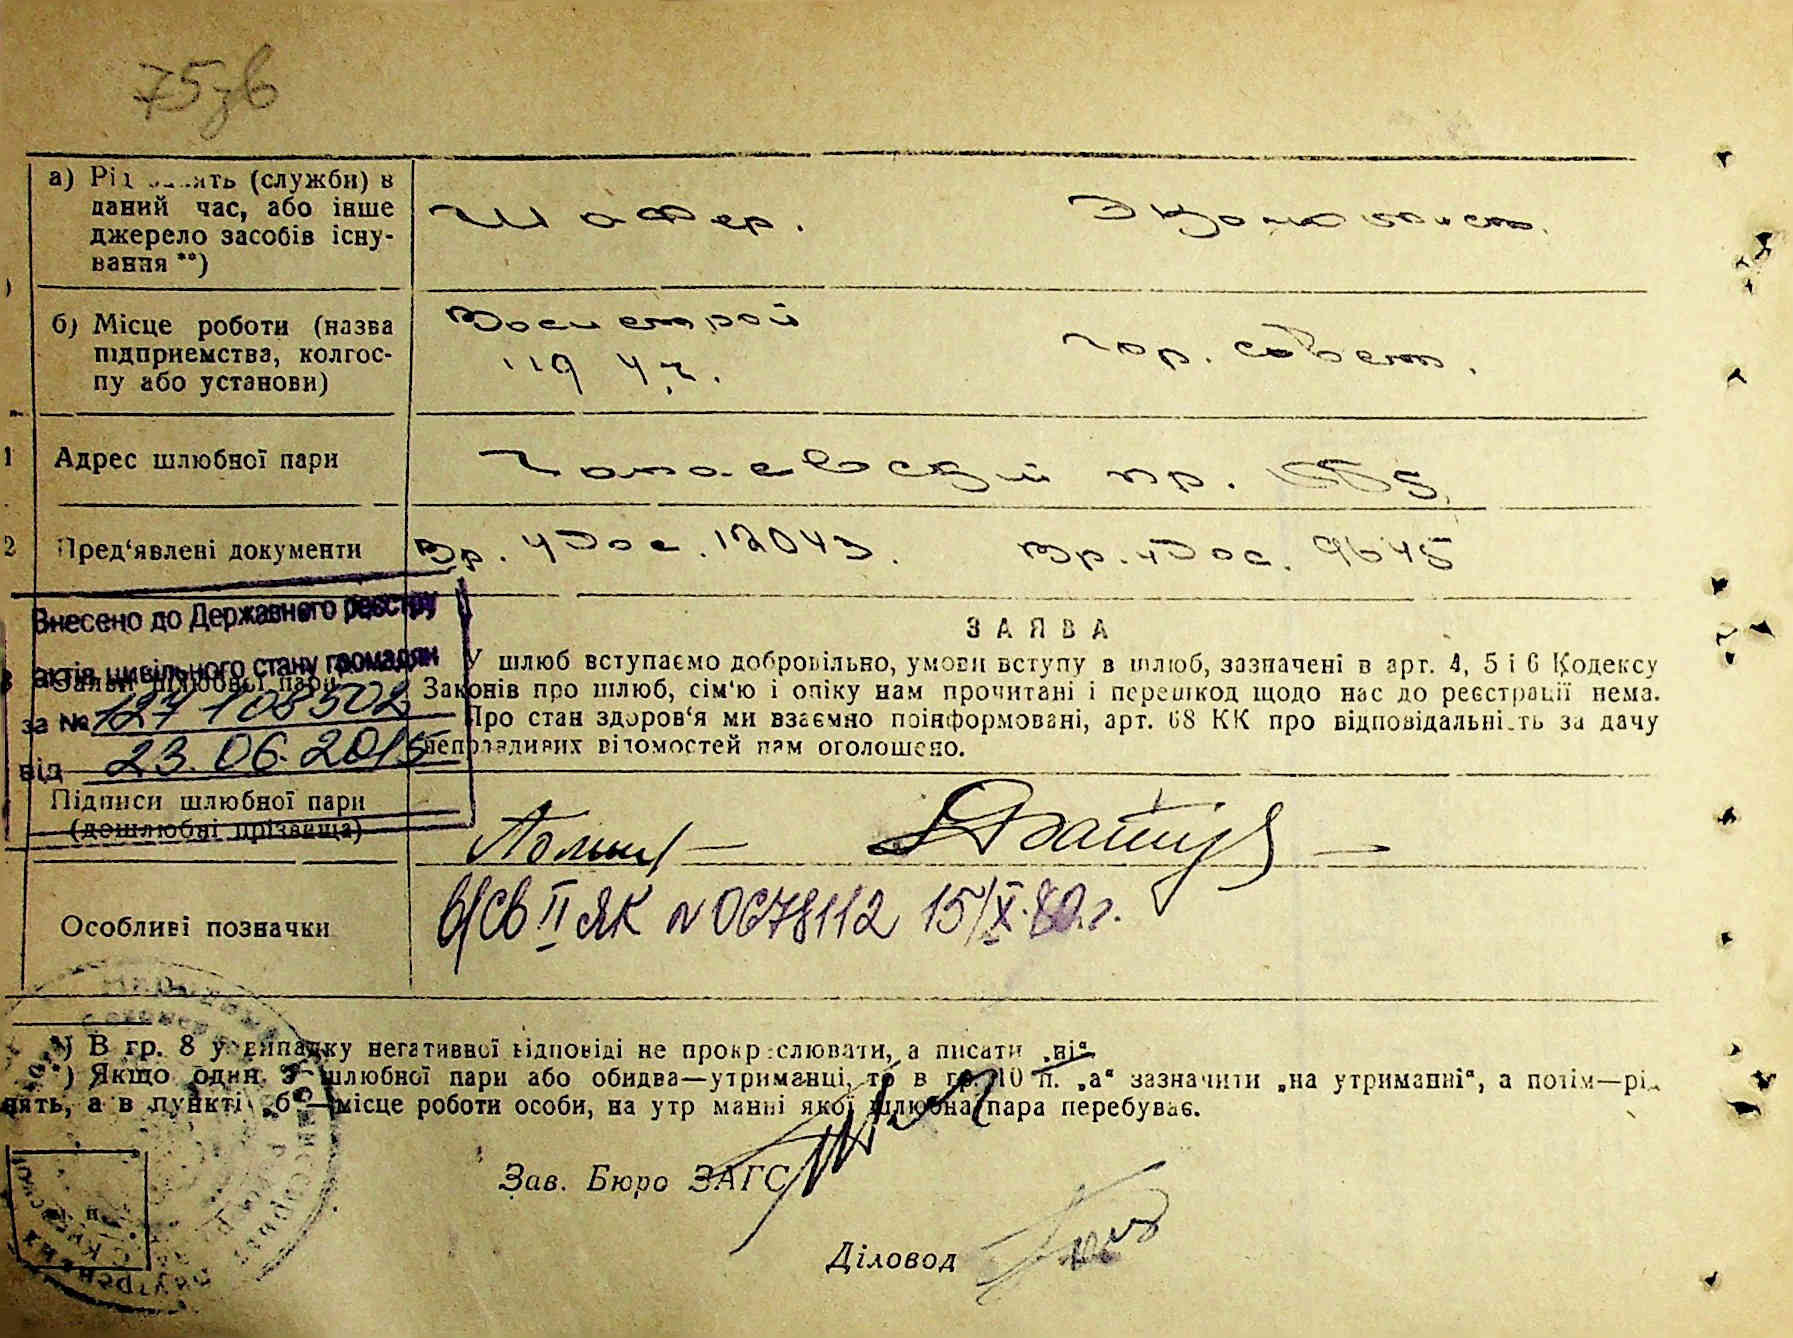 а) Рід занять (служби) в
даний час, або інше
джерело засобів існу-
вання **)
Шофер. Экономист.
б) Місце роботи (назва
підприемства, колгос-
пу або установи)
Гор. совет.
Адрес шлюбної пари
Чапаевский пр.
2 Пред'явлені документи
Вр. удос. 12043. Вр. удос. 9645
Внесено до Державного реєстру
актів цивільного стану громадян
за № 127 108502
від 23.06.2015
ЗАЯВА
У шлюб вступаємо добровільно, умови вступу в шлюб, зазначені в арт. 4, 5 і 6 Кодексу
Законів про шлюб, сім'ю і опіку нам прочитані і перешкод щодо нас до реєстрації нема.
Про стан здоров'я ми взаємно поінформовані, арт. 68 КК про відповідальність за дачу
неправдивих відомостей нам оголошено.
Підписи шлюбної пари
(дошлюбні прізвища)
Особливі позначки
в/св II ЯК № 0678112 15/X-80 г.
*) В гр. 8 у випадку негативної відповіді не прокреслювати, а писати „ні“
**) Якщо один з шлюбної пари або обидва—утриманці, то в гр. 10 п. „а“ зазначити „на утриманні“, а потім—рід
нять, а в пункті „б“—місце роботи особи, на утриманні якої шлюбна пара перебуває.
Зав. Бюро ЗАГС
Діловод